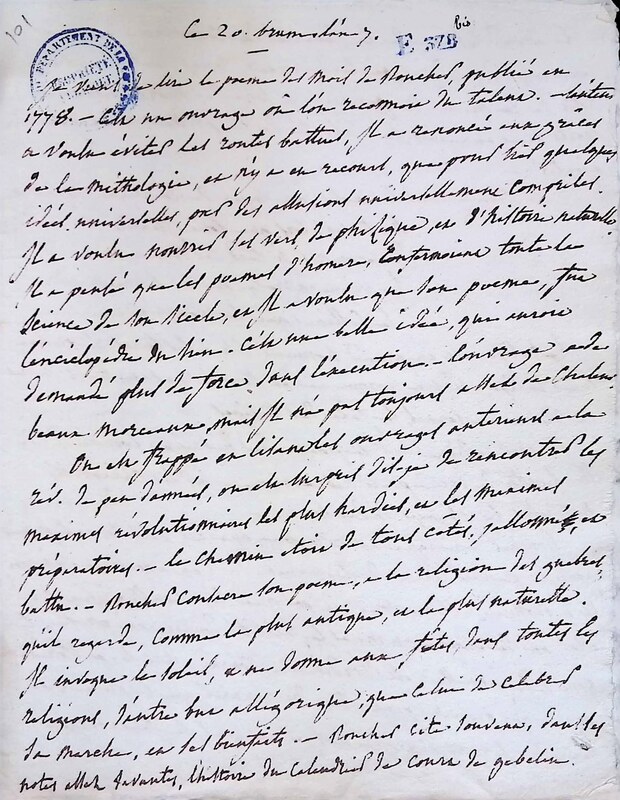 101
Ce 20. brum. l'an 7.
bis
F 378
DEPARTEMENT DE LA
PROPRIÉTÉ
de lire le poeme des mois de Roucher, publié en
1778. — C'est un ouvrage où l'on reconnoit du talent. — l'auteur
a voulu éviter les routes battues, il a renoncé aux grâces
de la mithologie, et n'y a eu recours, que pour des quelques
idées universelles, par des allusions universellement comprises.
Il a voulu nourrir ses vers, de phisique, et d'histoire naturelle
Il a pensé que les poemes d'homere, renfermoient toute la
science de son siecle, et il a voulu que son poeme, fut
l'enciclopédie du sien. C'est une belle idée, qui auroit
demandé plus de force dans l'exécution. — l'ouvrage a de
beaux morceaux, mais il n'a pas toujours assez de chaleur
On est frappé en lisant les ouvrages anterieurs a la
rév. de peu d'années, on est surpris dis-je de rencontrer les
maximes révolutionnaires les plus hardies, et les maximes
préparatoires. — le chemin etoit de tous cotés, jallonné, et
battu. — Roucher consacre son poeme, a la religion des guebres,
qu'il regarde, comme la plus antique, et la plus naturelle.
Il invoque le soleil, et ne donne aux fêtes, dans toutes les
religions, d'autre but allégorique, que celui de célébrer
sa marche, et ses bienfaits. — Roucher cite souvent, dans ses
notes assez savantes, l'histoire du calendrier de Court de gebelin.